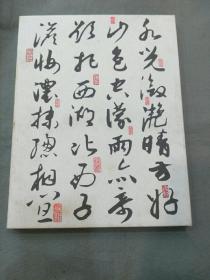 水光瀲灩晴方好
山色空濛雨亦奇
欲把西湖比西子
淡妝濃抹總相宜